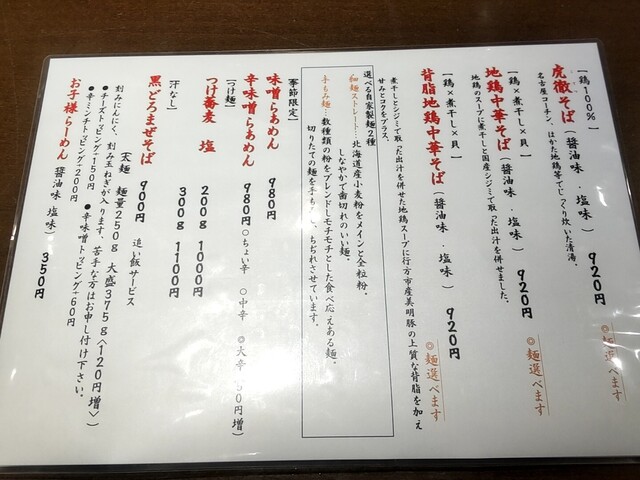 【鶏100%】
虎徹そば(醤油味・塩味)920円
◎麺選べます
名古屋コーチン、はかた地鶏等でじっくり炊いた清湯。
【鶏×煮干し×貝】
地鶏中華そば(醤油味・塩味)920円
◎麺選べます
地鶏のスープに煮干しと国産シジミで取った出汁を併せました。
【鶏×煮干し×貝】
背脂地鶏中華そば(醤油味・塩味)920円
◎麺選べます
煮干しとシジミで取った出汁を併せた地鶏スープに行方市産美明豚の上質な背脂を加え
甘みとコクをプラス。
選べる自家製麺2種
和麺ストレート:北海道産小麦粉をメインと全粒粉。
しなやかで歯切れのいい麺。
手もみ麺:数種類の粉をブレンドしモチモチとした食べ応えある麺。
切りたての麺を手もみし、ちぢれさせています。
【季節限定】
味噌らあめん 980円
辛味噌らあめん 980円 ○ちょい辛 ○中辛 ◎大辛(50円増)
【つけ麺】
つけ蕎麦 塩 200g 1000円
300g 1100円
【汁なし】
黒どろまぜそば 900円 追い飯サービス
(太麺 麺量250g 大盛375g(120円増))
刻みにんにく、刻み玉ねぎが入ります。苦手な方はお申し付け下さい。
●チーズトッピング+150円 ●辛味噌トッピング+60円
●辛ミンチトッピング+150円
お子様らーめん(醤油味 塩味) 350円